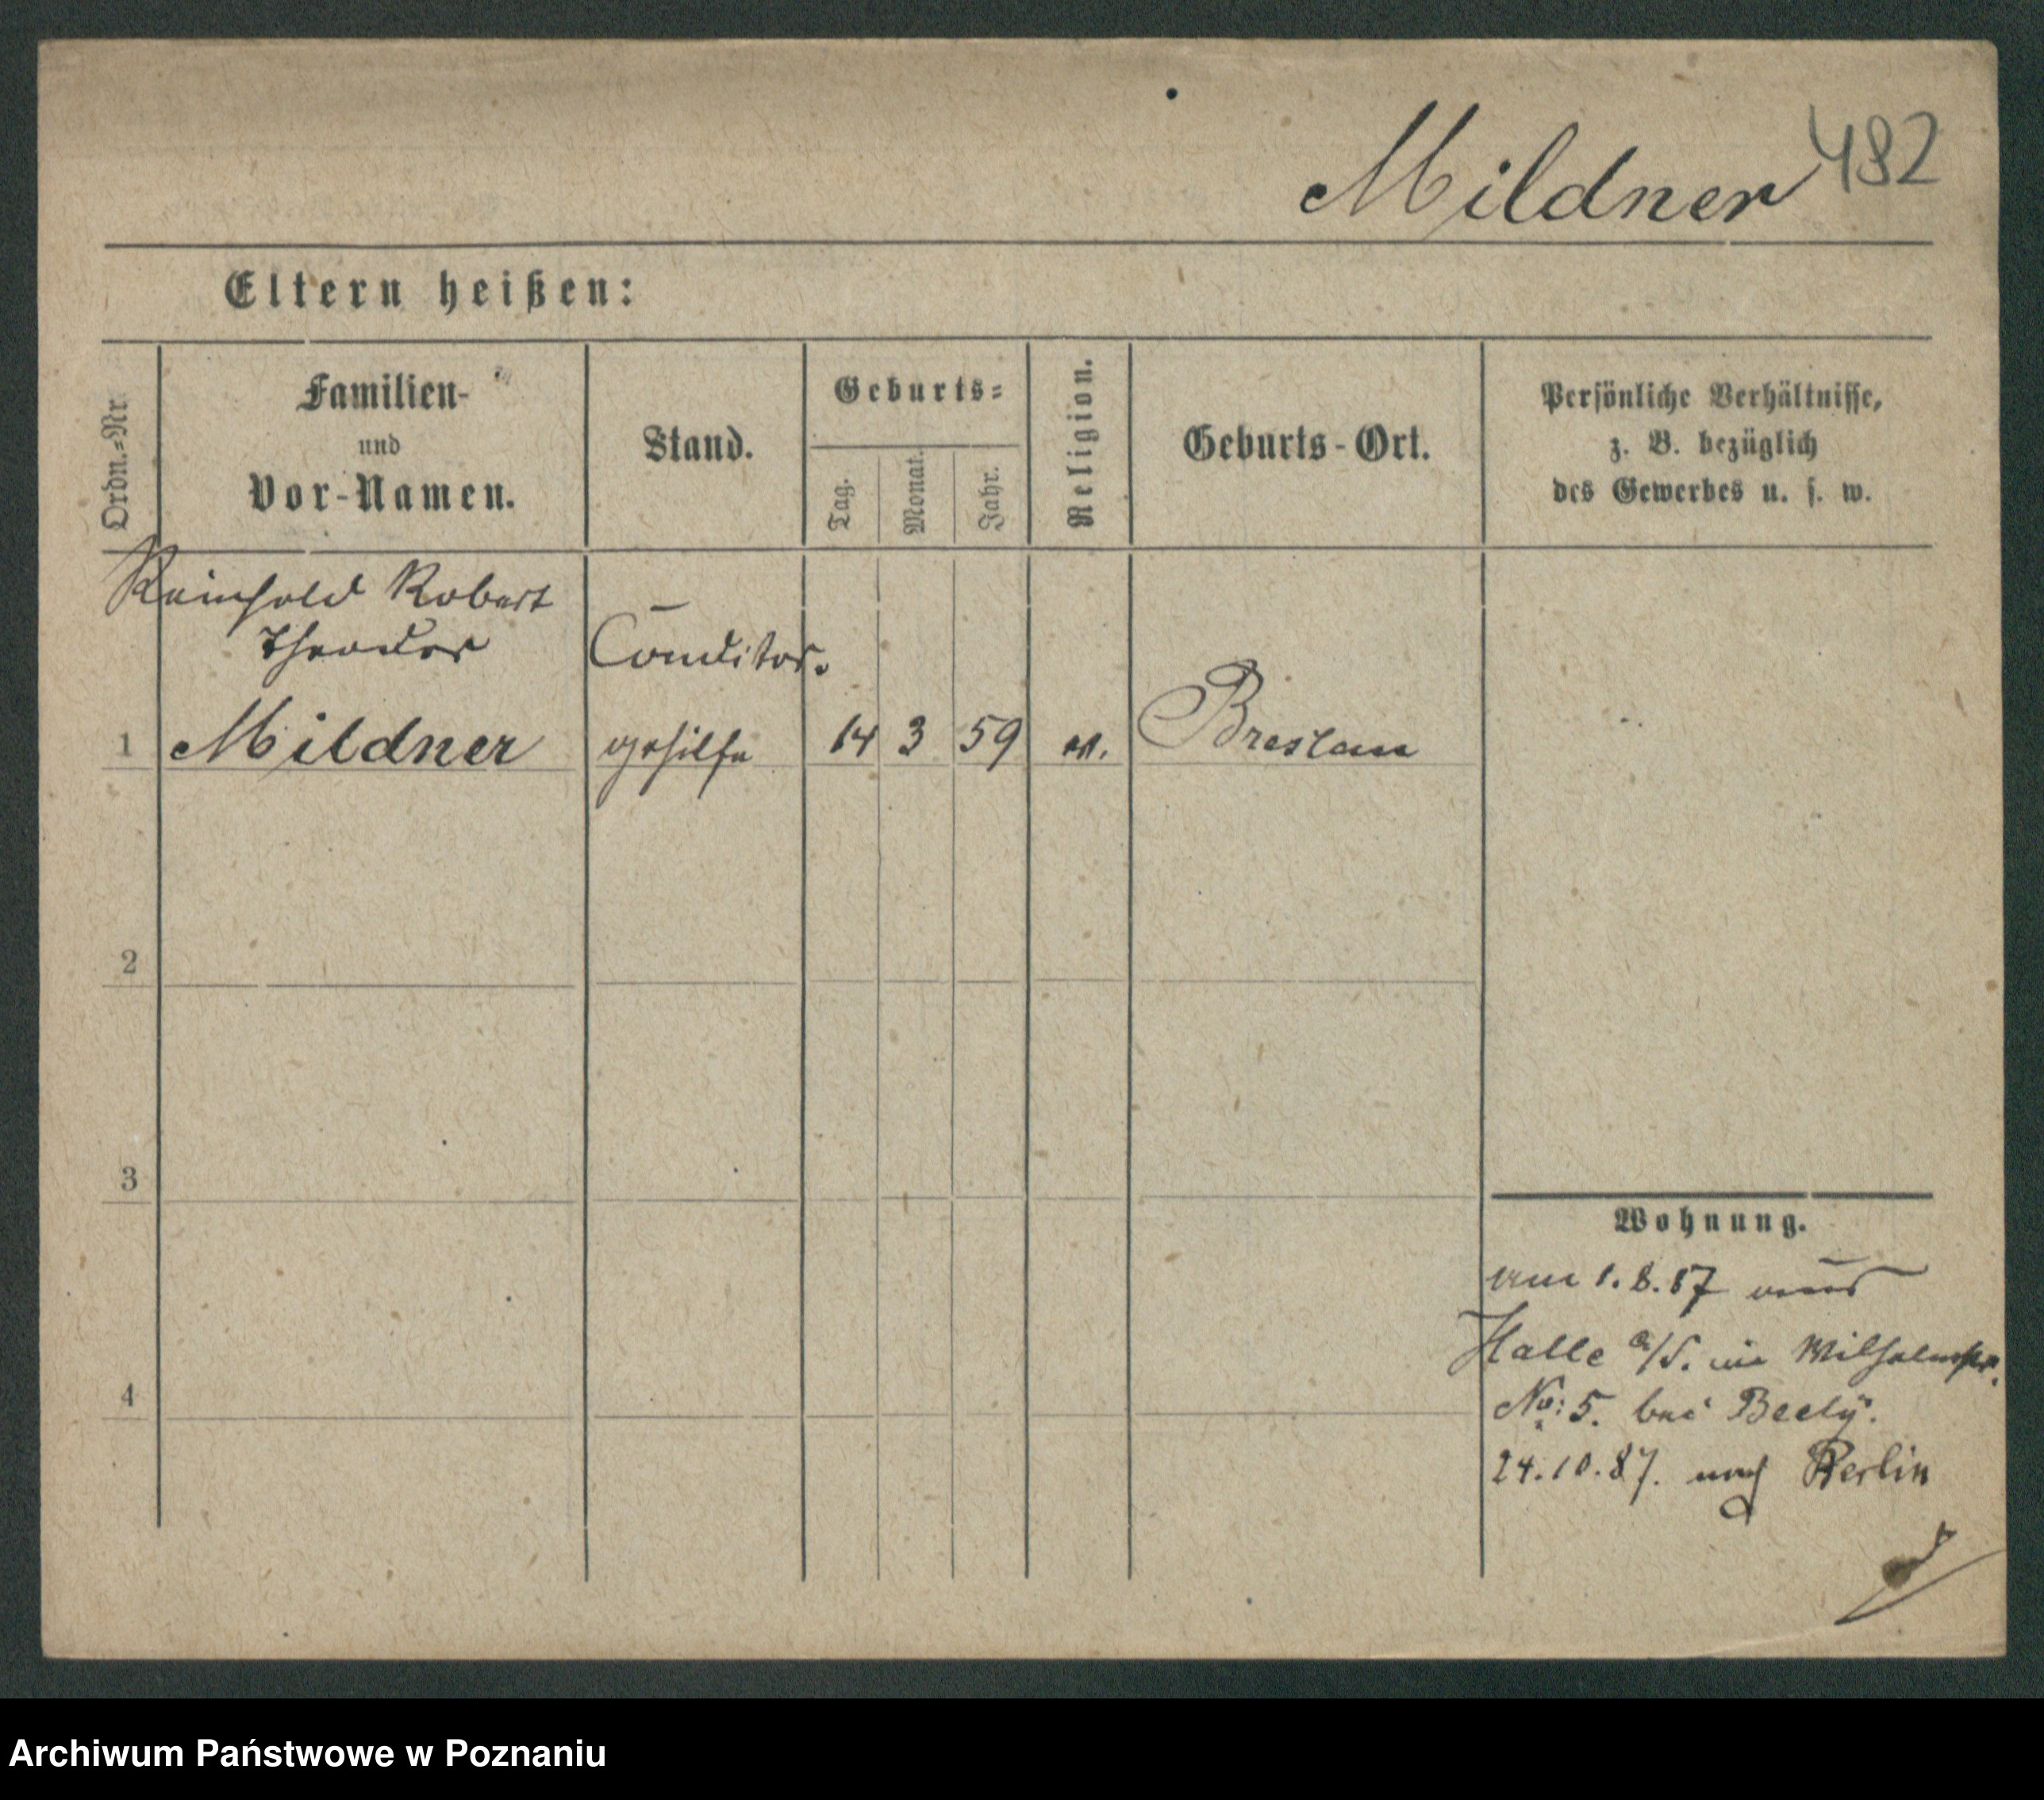 Mildner 482
Eltern heißen:
Ordn.=Nr.
Familien-
und
Vor-Namen.
Stand.
Geburts=
Tag.
Monat.
Jahr.
Religion.
Geburts-Ort.
Persönliche Verhältnisse,
z. B. bezüglich
des Gewerbes u. s. w.
Reinhold Robert
Theodor
Conditor.
1 Mildner gehilfe 14 3 59 ev. Breslau
2
3
4
Wohnung.
am 1.8.87 aus
Halle a/S. in Wilhelmstr.
No: 5. bei Beely.
24.10.87. nach Berlin
Archiwum Państwowe w Poznaniu